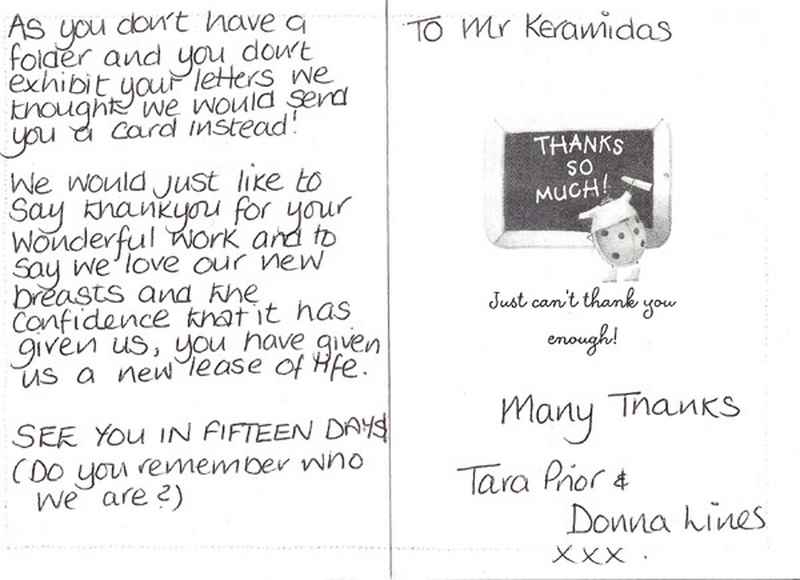 As you don't have a
folder and you don't
exhibit your letters we
thought we would send
you a card instead!
We would just like to
say thankyou for your
wonderful work and to
say we love our new
breasts and the
confidence that it has
given us, you have given
us a new lease of life.
SEE YOU IN FIFTEEN DAYS
(Do you remember who
we are?)
TO Mr Keramidas
THANKS
SO
MUCH!
Just can't thank you
enough!
Many Thanks
Tara Prior &
Donna Lines
xxx.